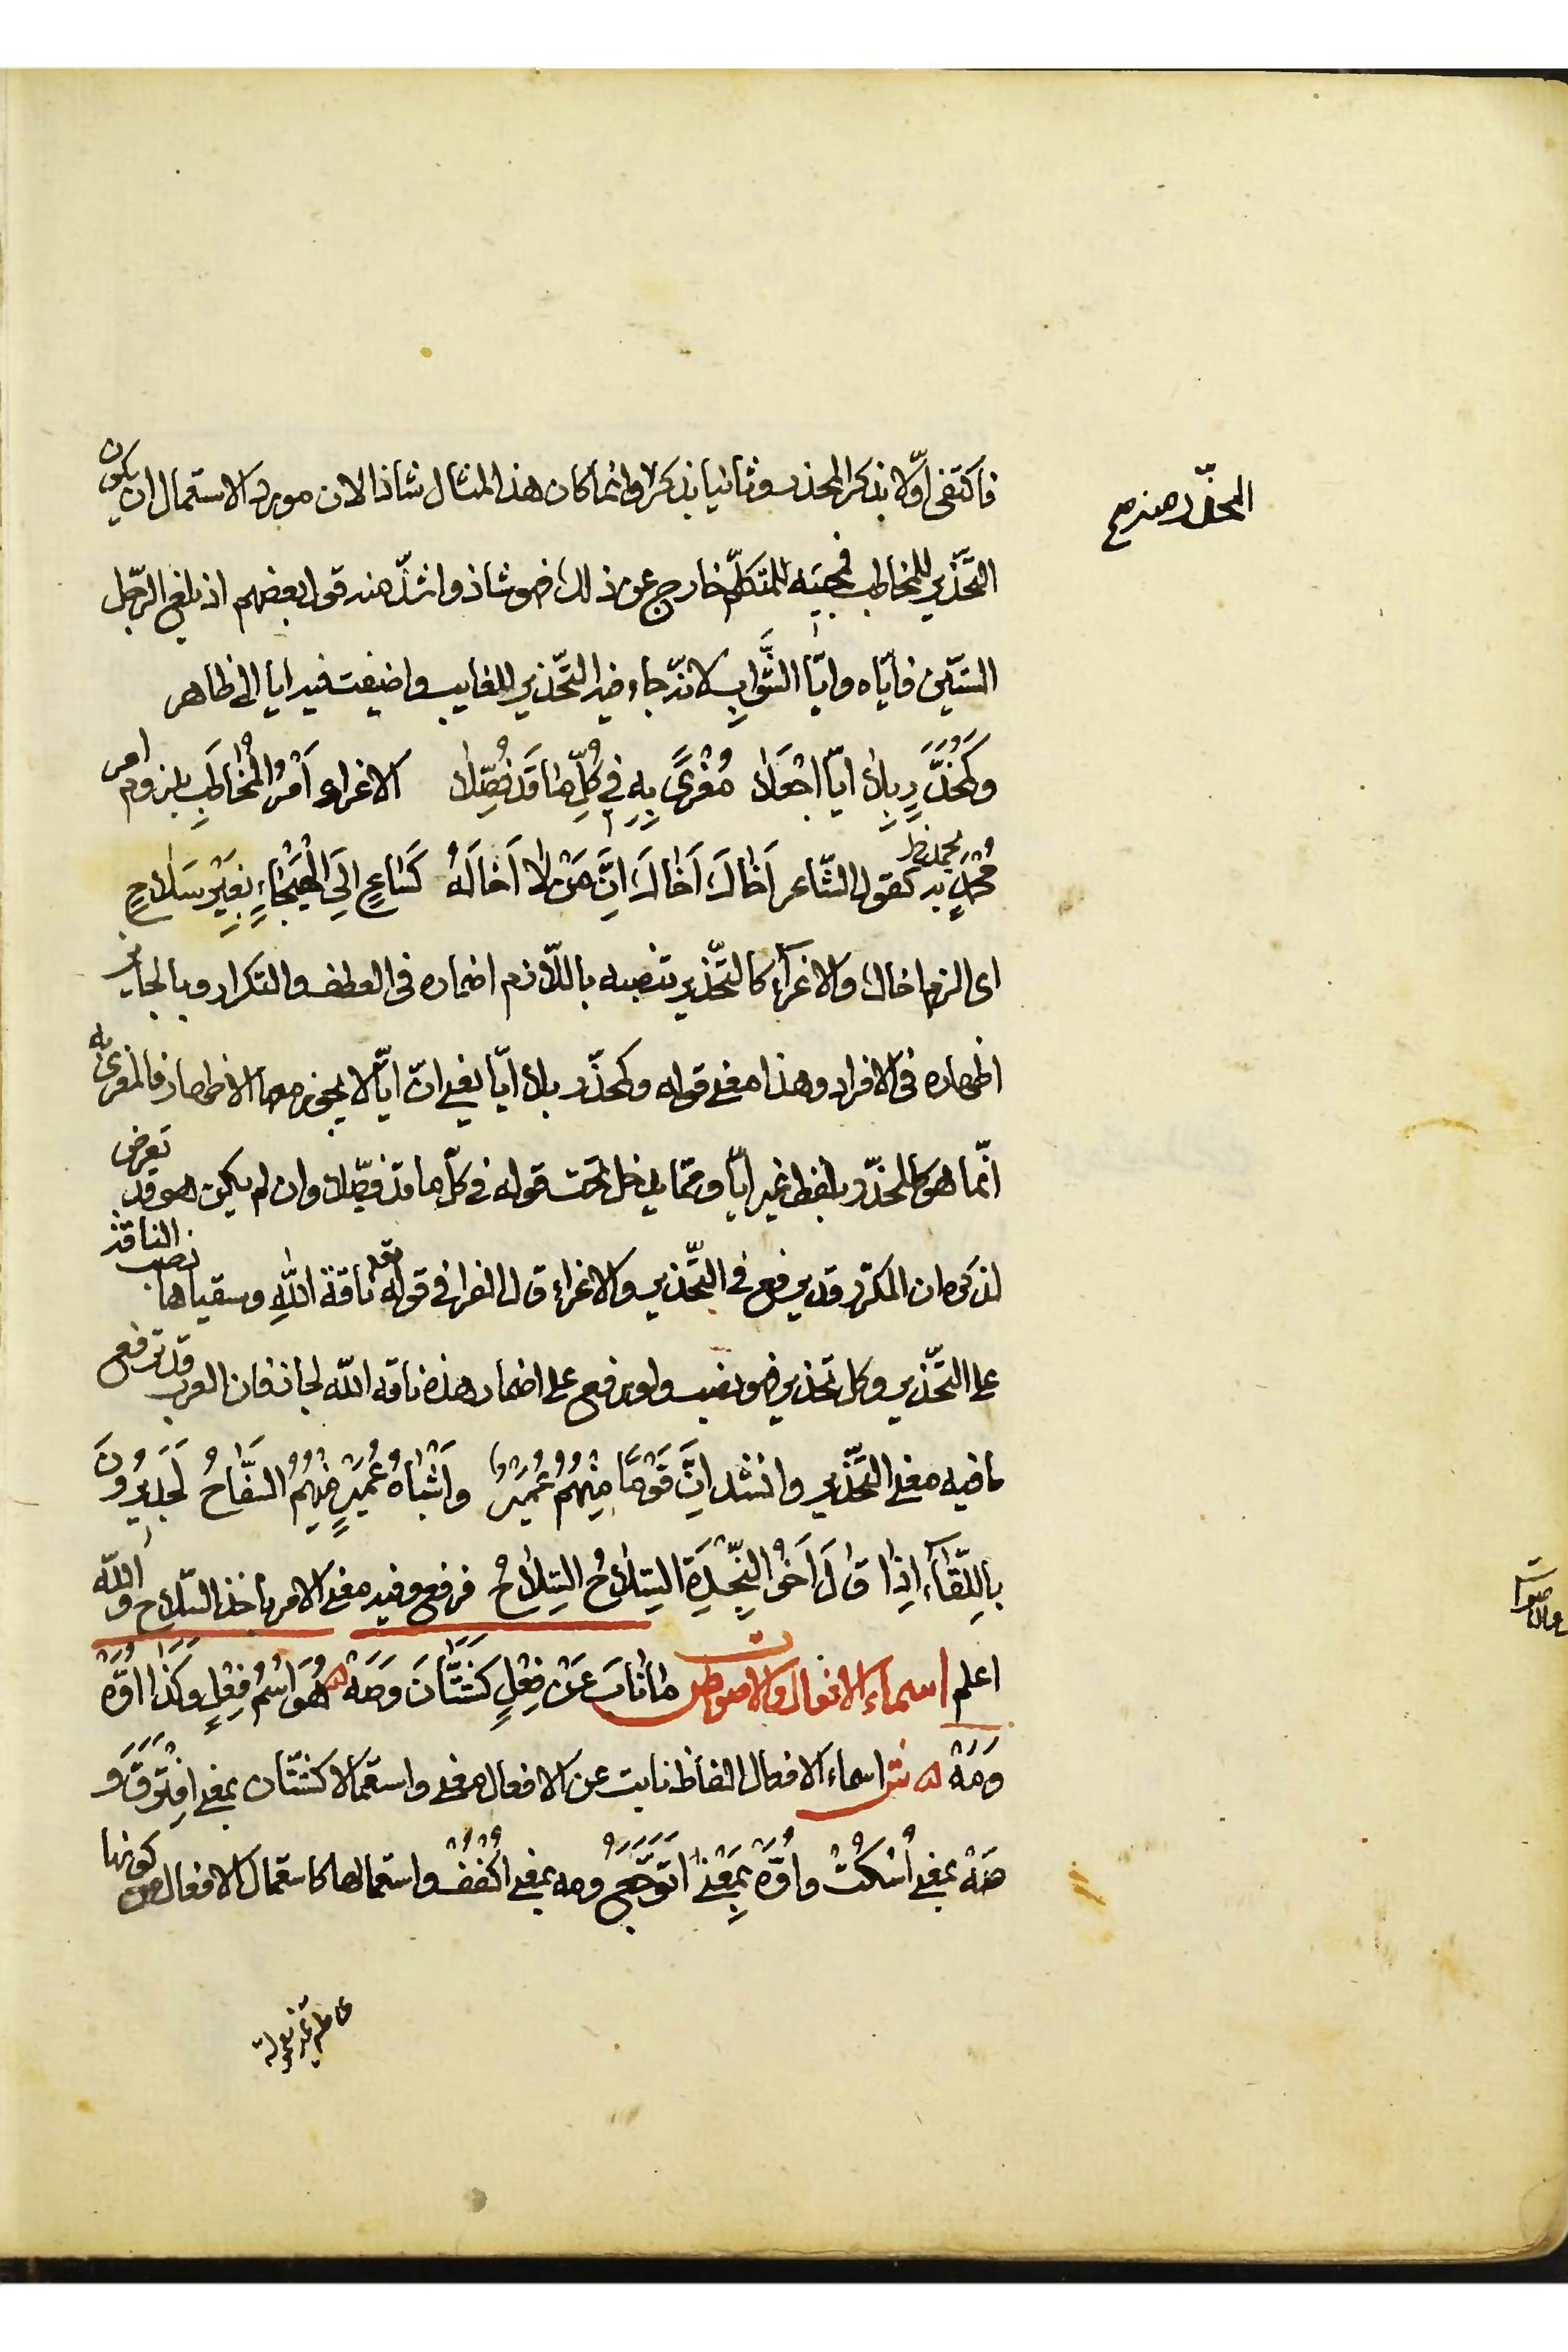 فاكتفى اوّلا بذكر المحذر وثانيا بذكر وانما كان هذا المثال شاذا لان مورد الاستعمال ان يكون
المحذّر منه صح
التّحذير للمخاطب فمجيئه للمتكلّم خارج عن ذلك فهو شاذ واشذّ منه قول بعضهم اذ بلغ الرّجل
السّتّين فايّاه وايّا الشَّوابِّ لانّه جاء فيه التّحذير للغايب واضيفت فيه ايا الى ظاهر
وَكَمُحَذَّرٍ بِلاٰ ايّا اجْعَلاٰ مُغْرًى بِهِ فِي كُلِّ مٰا قَدْ فُصِّلاٰ الاغراء اَمْرُ الْمُخٰاطَبِ بلزوم امر
مُحْمَدٍ به كقول الشّاعر اَخٰاكَ اَخٰاكَ اِنَّ مَنْ لاٰ اَخٰا لَهُ كَسٰاعٍ اِلَى الْهَيْجٰاءِ بِغَيْرِ سِلاٰحٍ
اى الزم اخاك والاغرآء كالتّحذير تنصبه باللّازم اضماره فى العطف والتكرار وبالجايز
اظهاره فى الافراد وهذا معنى قوله وكمحذّر بلا ايّا يعنى انّ ايّا لا يجوز معها الاظهار فالمغرى به
انّما هو كالمحذّر بلفظ غير ايّا وممّا يدخل تحت قوله فى كلّ ما قد فصّلا وان لم يكن هو قد تعرض
لذكره ان المكرّر قد يرفع فى التّحذير والاغراء قال الفرا فى قوله تعه ناقة اللّٰهِ وسقياها نصب الناقة
على التّحذير وكل تحذير فهو نصب ولو رفع على اضمار هذه ناقة اللّه لجاز فان العرب قد ترفع
ما فيه معنى التّحذير وانشد اِنَّ قَوْمًا مِنْهُمْ عُمَيْرٌ وَاَشْبٰاهُ عُمَيْرٍ مِنْهُمُ السَّفّاحُ لَجَدِيرُونَ
بِاللِّقٰآءِ اِذٰا قٰالَ اَخُو النَّجْدَةِ السِّلاٰحُ السِّلاٰحُ فرفع وفيه معنى الامر باخذ السّلاح واللّه
اعلم اسماء الافعال والاصوات ص مٰا نٰابَ عَنْ فِعْلٍ كَشَتّٰانَ وَصَهْ هُوَ اسْمُ فِعْلٍ وَكَذٰا اَوَّهْ
وَمَهْ ش اسماء الافعال الفاظ نابت عن الافعال معنى واستعمالا كشتّان بمعنى افْتَرَقَ و
صَهْ بمعنى اُسْكُتْ واوَّهْ بِمَعْنىٰ اَتَوَجَّعُ ومه بمعنى اُكْفُفْ واستعمالها كاستعمال الافعال من كونها